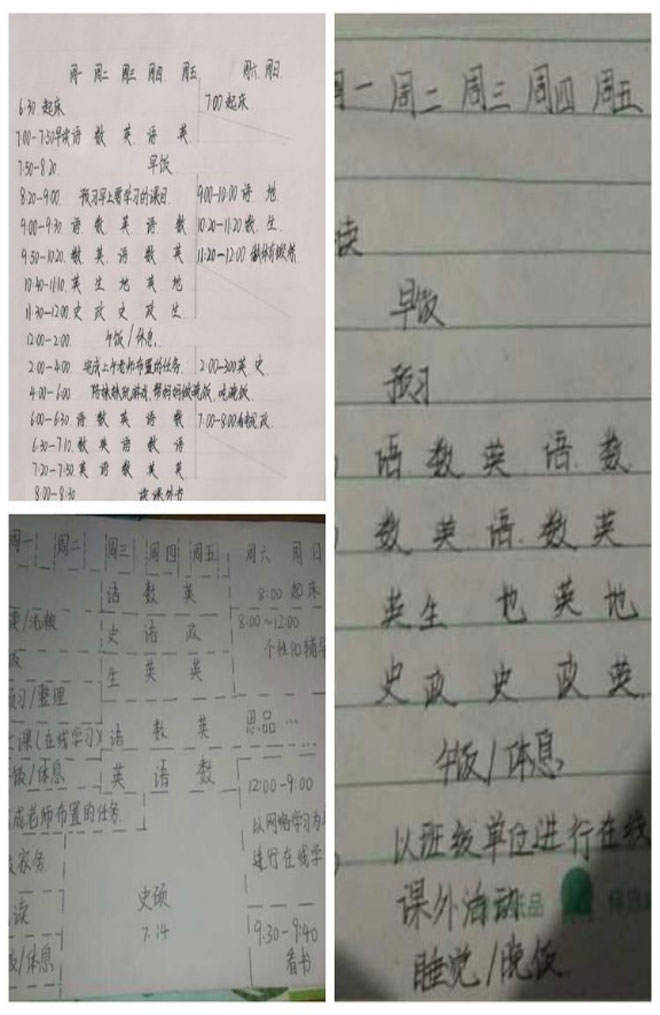 周一 周二 周三 周四 周五 周六 周日
6:30 起床 7:00 起床
7:00-7:50早读 语 数 英 语 英
7:50-8:20 早饭
8:20-9:00 预习早上要学习的课目 9:00-10:00 语 地
9:00-9:30 语 数 英 语 数 10:20-11:20 数 生
9:50-10:20 数 英 语 数 英 11:20-12:00
10:40-11:10 英 生 地 英 地
11:30-12:00 史 政 史 政 生
12:00-2:00 午饭/休息
2:00-4:00 完成上午老师布置的任务 2:00-3:00 英 史
4:00-6:00 陪妹妹玩游戏,帮妈妈做晚饭,吃晚饭
6:00-6:30 语 数 英 语 数 7:00-8:00 政
6:30-7:10 数 英 语 数 语
7:20-7:50 英 语 数 英 英
8:00-8:30 读课外书
周一 周二 周三 周四 周五 周六 周日
语 数 英 8:00 起床
史 语 政 8:00~12:00
个性化辅导
生 英 英
预习/整理
课(在线学习) 语 数 英 思品……
饭/休息 英 语 数
12:00-9:00
成老师布置的任务
以网络学习为
家务 进行在线学
读 史硕
7.14 9:30-9:40
饭/休息 看书
周一 周二 周三 周四 周五
读
早饭
预习
语 数 英 语 数
数 英 语 数 英
英 生 也 英 地
史 政 史 政 英
午饭/休息
以班级单位进行在线
课外活动
睡觉/晚饭